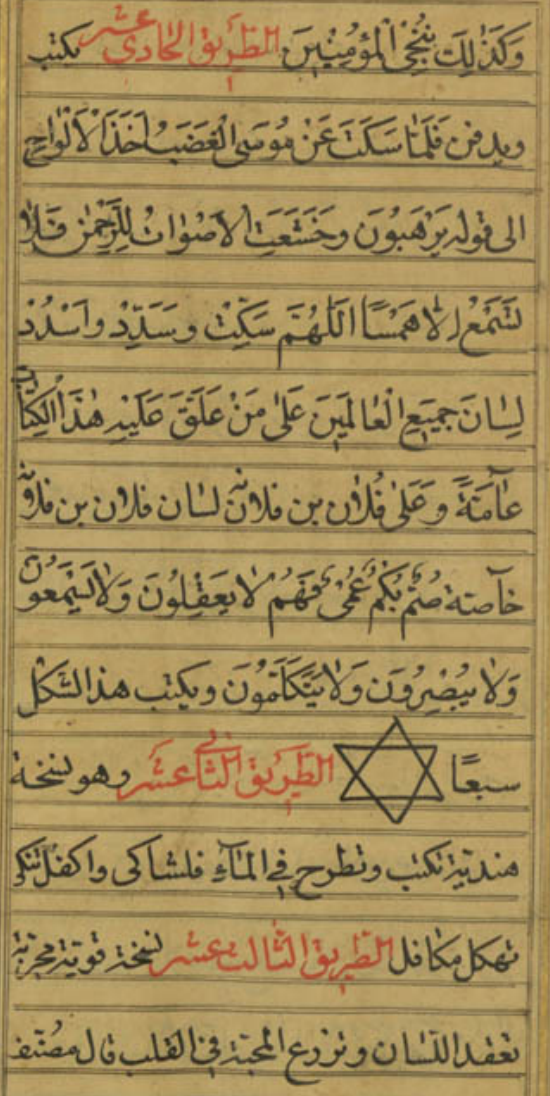 وَكَذَٰلِكَ نُنْجِي الْمُؤْمِنِينَ الطَّرِيق الحَادِي عشر يكتب
ويدفن فَلَمَّا سَكَتَ عَنْ مُوسَى الْغَضَبُ أَخَذَ الْأَلْوَاحَ
الى قوله يَرْهَبُونَ وَخَشَعَتِ الْأَصْوَاتُ لِلرَّحْمٰنِ فَلَا
تَسْمَعُ إِلَّا هَمْسًا اللّٰهُمَّ سَكِّتْ وسَدِّدْ واسْدُدْ
لِسَانَ جَمِيعِ الْعَالَمِينَ عَلَى مَنْ عَلَّقَ عَلَيْهِ هٰذَا الْكِتَابَ
عَامَّةً وَعَلَى فُلَان بن فلانة لسان فلان بن فلانة
خاصة صُمٌّ بُكْمٌ عُمْيٌ فَهُمْ لَا يَعْقِلُونَ وَلَا يَسْمَعُونَ
وَلَا يُبْصِرُونَ وَلَا يَتَكَلَّمُونَ ويكتب هذا الشكل
سبعًا الطَّرِيق الثَّانِي عشر وهو نسخة
هندية تكتب وتطرح في المَاءِ
الطريق الثالث عشر نسخة قوية مجربة
تعقد اللسان وتزرع المحبة في القلب قال مصنف